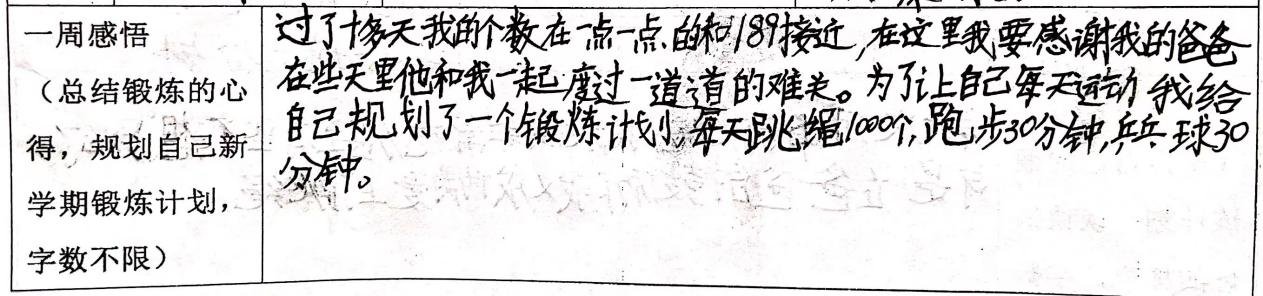 一周感悟
（总结锻炼的心
得，规划自己新
学期锻炼计划，
字数不限）
过了十多天我的个数在一点一点的和189接近,在这里我要感谢我的爸爸
在些天里他和我一起度过一道道的难关。为了让自己每天运动 我给
自己规划了一个锻炼计划,每天跳绳1000个,跑步30分钟,乒乓球30
分钟。